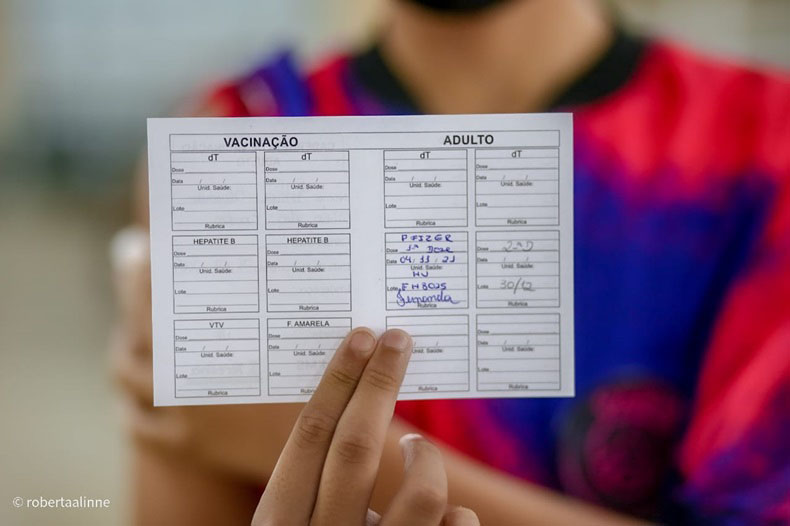 VACINAÇÃO ADULTO
dT dT dT dT
Dose Dose Dose Dose
Data / / Data / / Data / / Data / /
Unid. Saúde: Unid. Saúde: Unid. Saúde: Unid. Saúde:
Lote Lote Lote Lote
Rubrica Rubrica Rubrica Rubrica
HEPATITE B HEPATITE B PFIZER
Dose Dose Dose 1ª Dose Dose 2ª D
Data / / Data / / Data 04.11.21 Data / /
Unid. Saúde: Unid. Saúde: HU Unid. Saúde:
Lote Lote Lote Lote 30/12
Rubrica Rubrica Fernanda Rubrica
VTV F AMARELA
Dose Dose Dose
Data / / Data / / Data / /
Unid. Saúde: Unid. Saúde: Unid. Saúde: Unid. Saúde:
Lote Lote
Rubrica Rubrica Rubrica Rubrica
© robertaalinne